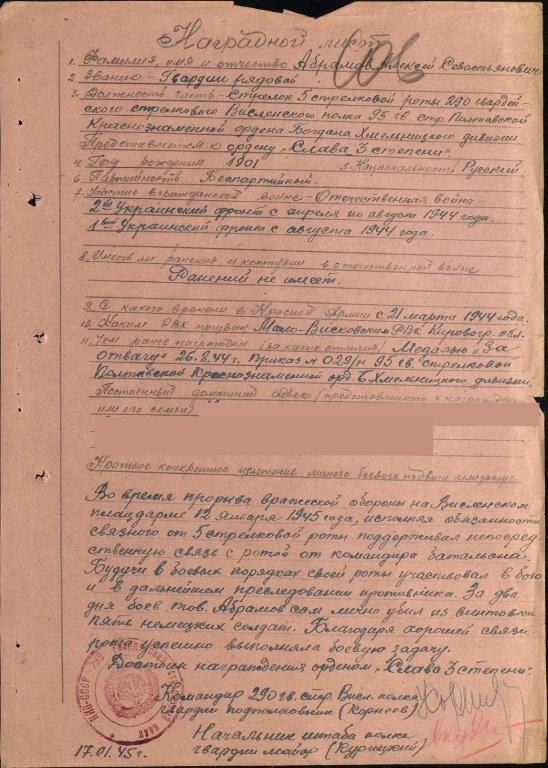 Наградной лист
1. Фамилия, имя и отчество Абрамов Алексей Севастьянович
2. Звание - Гвардии рядовой
3. Должность, часть - Стрелок 5 стрелковой роты 290 гвардей-
ского стрелкового Висленского полка 95 гв. стр. Полтавской
Краснознаменной ордена Богдана Хмельницкого дивизии
Представляется к ордену „Слава 3 степени".
4. Год рождения 1901 5. Национальность Русский
6. Партийность Беспартийный.
7. Участие в гражданской войне - Отечественная война -
2ой Украинский фронт с апреля по август 1944 года.
1вый Украинский фронт с августа 1944 года.
8. Имеет ли ранения и контузии в отечественной войне
Ранений не имеет.
9. С какого времени в Красной Армии с 21 марта 1944 года.
10. Каким РВК призван Мало-Висковским РВК Кировогр. обл.
11. Чем ранее награжден (за какие отличия) Медалью „За
отвагу" 26.8.44 г. Приказ № 029/н 95 гв. стрелковой
Полтавской Краснознаменной орд. Б. Хмельницкого дивизии.
Постоянный домашний адрес (представленного к награждению
или его семьи)
Краткое конкретное изложение личного боевого подвига или заслуг.
Во время прорыва вражеской обороны на Висленском
плацдарме 12 января 1945 года, исполняя обязанности
связного от 5 стрелковой роты поддерживал непосред-
ственную связь с ротой от командира батальона.
Будучи в боевых порядках своей роты участвовал в бою
и в дальнейшем преследовании противника. За два
дня боев тов. Абрамов сам лично убил из винтовки
пять немецких солдат. Благодаря хорошей связи
рота успешно выполняла боевую задачу.
Достоин награждения орденом „Слава 3 степени".
Командир 290 гв. стр. Висл. полка
гвардии подполковник (Корнеев)
Начальник штаба полка
гвардии майор (Курицкий)
17.01.45 г.